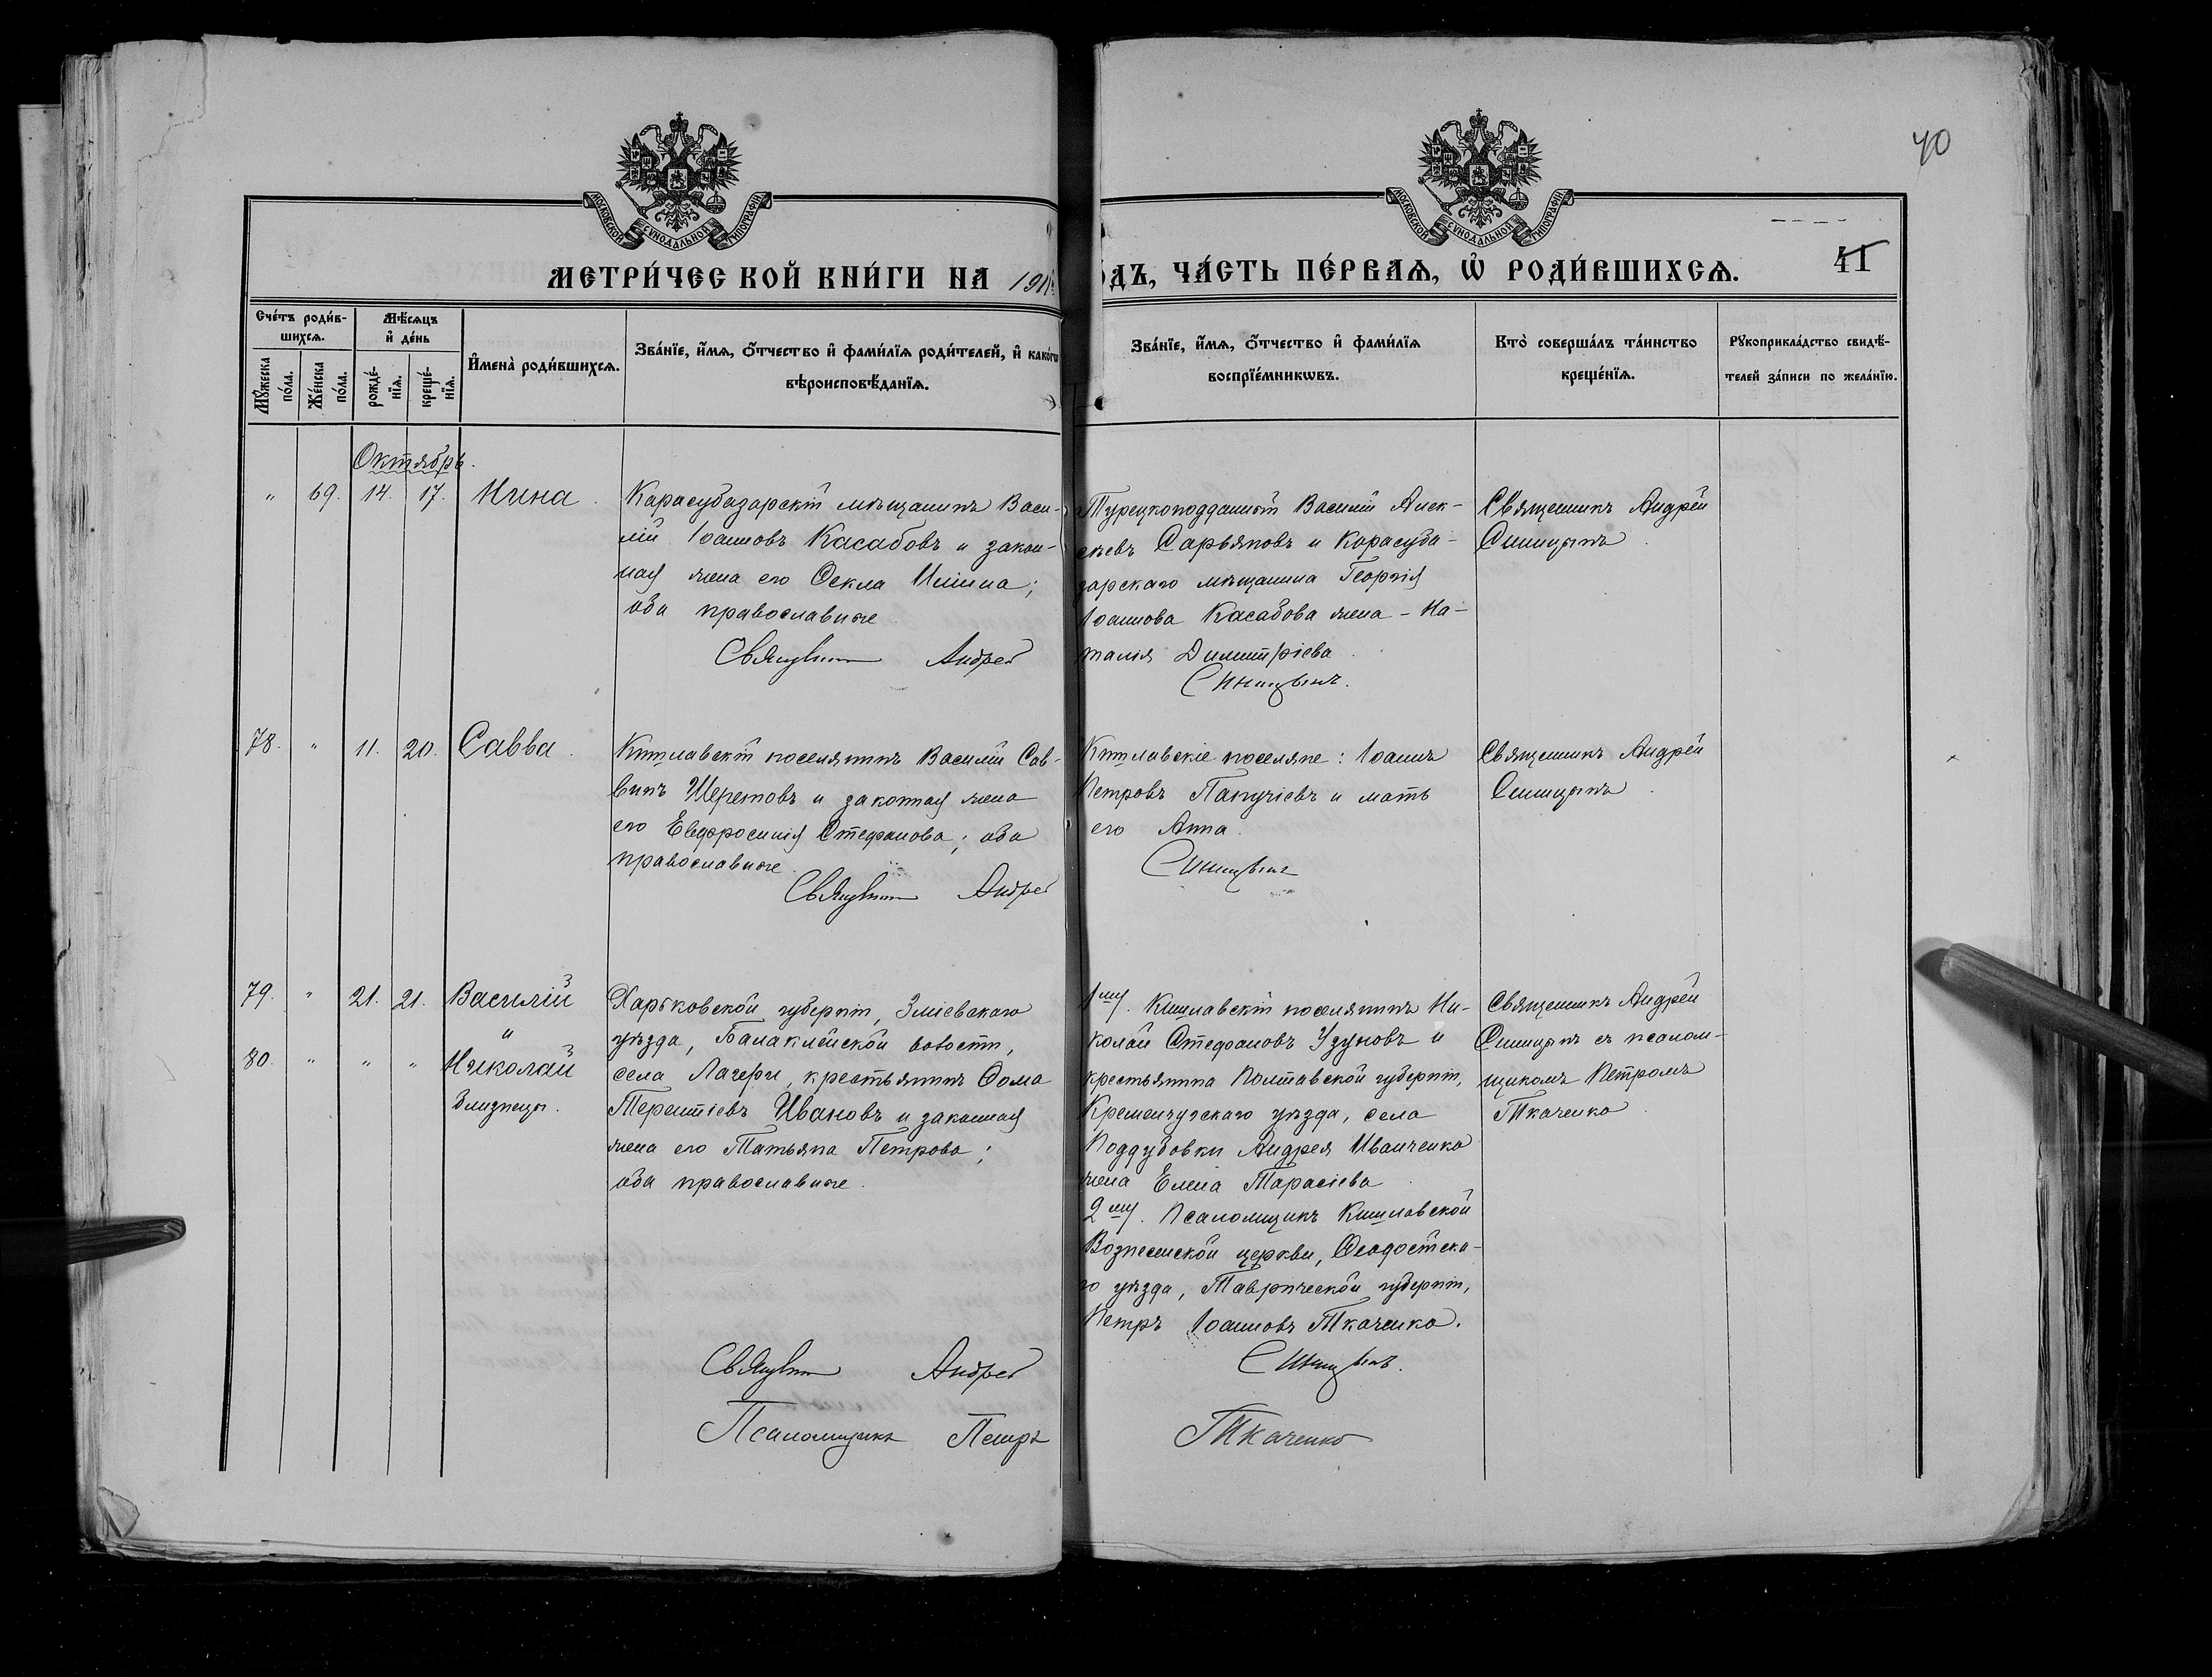 40
МОСКОВСКОЙ СУНОДАЛЬНОЙ ТИПОГРАФІИ
МОСКОВСКОЙ СУНОДАЛЬНОЙ ТИПОГРАФІИ
МЕТРИ́ЧЕСКОЙ КНИ́ГИ НА 191
ДЪ, ЧА́СТЬ ПЕ́РВАѦ, Ѡ҆ РОДИ́ВШИХСѦ.
41
Сче́тъ роди́в-
шихсѧ.
Мꙋ́жеска по́ла.
Же́нска по́ла.
Мѣ́сѧцъ и҆ де́нь
рожде́-нїѧ.
креще́-нїѧ.
И҆мена̀ роди́вшихсѧ.
Зва́нїе, и҆́мѧ, ѻ҆́тчество и҆ фами́лїѧ роди́телей, и҆ како́гѡ
вѣроисповѣ́данїѧ.
Зва́нїе, и҆́мѧ, ѻ҆́тчество и҆ фами́лїѧ
воспрїе́мникѡвъ.
Кто̀ соверша́лъ та́инство
креще́нїѧ.
Рꙋкоприкла́дство свидѣ́-
телей за́писи по жела́нїю.
Октябрь.
" 69. 14. 17. Нина.
Карасубазарскій мѣщанинъ Васи-
лій Іоанновъ Касабовъ и закон-
ная жена его Ѳекла Ильина;
оба православные.
Священникъ Андрей
Турецкоподданный Василій Алек-
сѣевъ Сарьяновъ и Карасуба-
зарскаго мѣщанина Георгія
Іоаннова Касабова жена - На-
талія Димитріева.
Синицынъ.
Священникъ Андрей
Синицынъ.
78. " 11. 20. Савва.
Кишлавскій поселянинъ Василій Сав-
винъ Шеретовъ и законная жена
его Евфросинія Стефанова; оба
православные.
Священникъ Андрей
Кишлавскіе поселяне: Іоаннъ
Петровъ Папучіевъ и мать
его Анна.
Синицынъ
Священникъ Андрей
Синицынъ.
79. " 21. 21. Василій
и
80. " " " Николай
близнецы.
Харьковской губерніи, Зміевскаго
уѣзда, Балаклейской волости,
села Лагери, крестьянинъ Ѳома
Терентіевъ Ивановъ и законная
жена его Татьяна Петрова;
оба православные.
Священникъ Андрей
Псаломщикъ Петръ
1му. Кишлавскій поселянинъ Ни-
колай Стефановъ Узуновъ и
крестьянина Полтавской губерніи,
Кременчугскаго уѣзда, села
Поддубовки Андрея Иванченко
жена Елена Тарасіева.
2му. Псаломщикъ Кишлавской
Вознесенской церкви, Ѳеодосійска-
го уѣзда, Таврической губерніи,
Петръ Іоанновъ Ткаченко.
Синицынъ.
Ткаченко
Священникъ Андрей
Синицынъ съ псалом-
щикомъ Петромъ
Ткаченко.